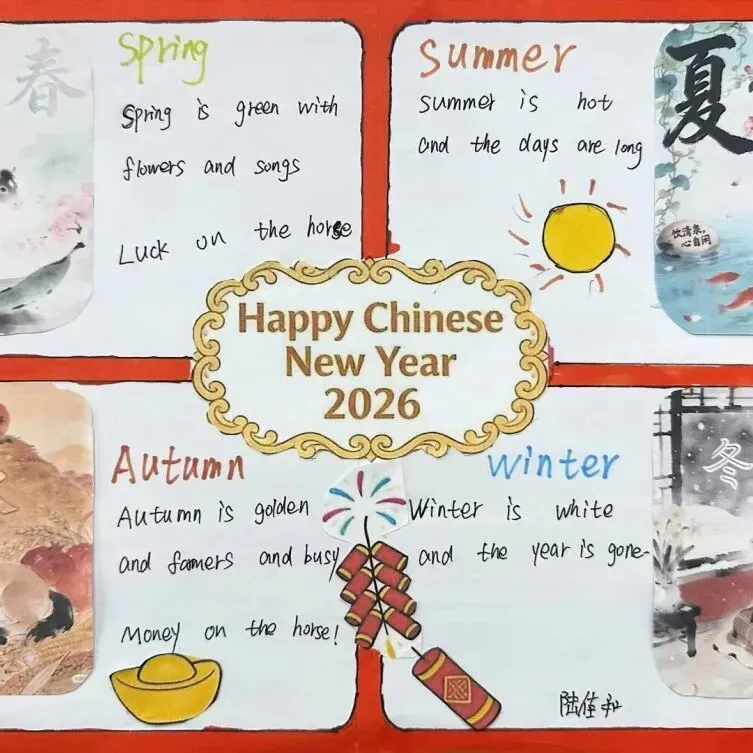 春
Spring
Spring is green with
flowers and songs
Luck on the horse
Summer
summer is hot
and the days are long
夏
饮清泉,
心自闲
Happy Chinese
New Year
2026
Autumn
Autumn is golden
and famers and busy
Money on the horse!
winter
Winter is white
and the year is gone
冬